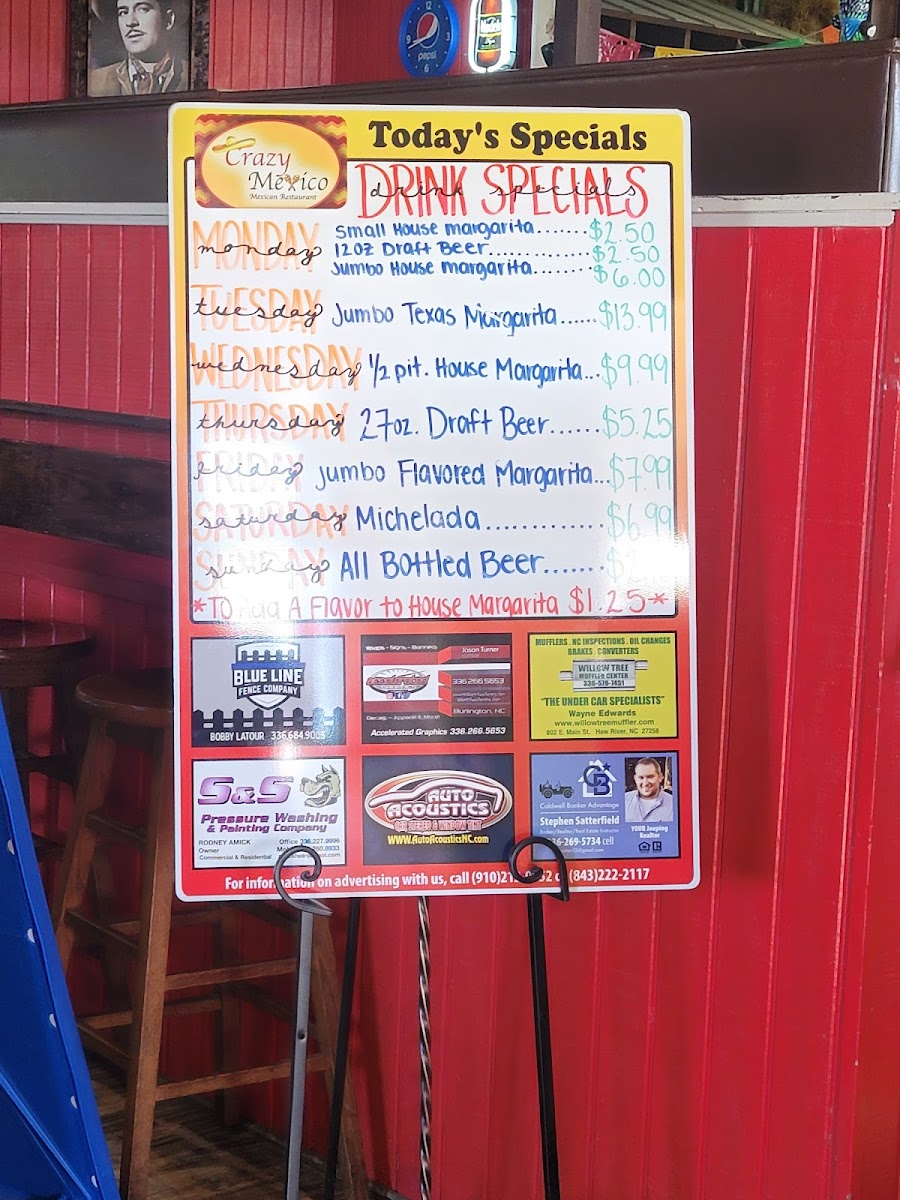 12
9
3
6
pepsi
Crazy
México
Mexican Restaurant
Today's Specials
DRINK SPECIALS
drink specials
MONDAY
monday
Small House margarita.......$2.50
12oz Draft Beer...............$2.50
Jumbo House margarita........$6.00
TUESDAY
tuesday
Jumbo Texas Margarita......$13.99
WEDNESDAY
wednesday
1/2 pit. House Margarita...$9.99
THURSDAY
thursday
27oz. Draft Beer......$5.25
FRIDAY
friday
jumbo Flavored Margarita...$7.99
SATURDAY
saturday
Michelada.............$6.99
SUNDAY
sunday
All Bottled Beer.......
*TO Add A Flavor to House Margarita $1.25*
BLUE LINE
FENCE COMPANY
BOBBY LATOUR 336.684.9005
Wraps - Signs - Banners
Jason Turner
336.266.5653
Burlington, NC
Decals - Apparel & More
Accelerated Graphics 336.266.5653
MUFFLERS . NC INSPECTIONS . OIL CHANGES
BRAKES . CONVERTERS
WILLOW TREE
MUFFLER CENTER
336-578-7451
"THE UNDER CAR SPECIALISTS"
Wayne Edwards
www.willowtreemuffler.com
802 E. Main St. Haw River, NC 27258
S&S
Pressure Washing
& Painting Company
RODNEY AMICK
Owner
Commercial & Residential
Office 336.227.9996
AUTO
ACOUSTICS
CAR STEREO & WINDOW TINT
WWW.AutoAcousticsNC.com
CB
Coldwell Banker Advantage
Stephen Satterfield
Broker/Realtor/Real Estate Instructor
36-269-5734 cell
YOUR Jeeping
Realtor
For information on advertising with us, call (910)21 (843)222-2117